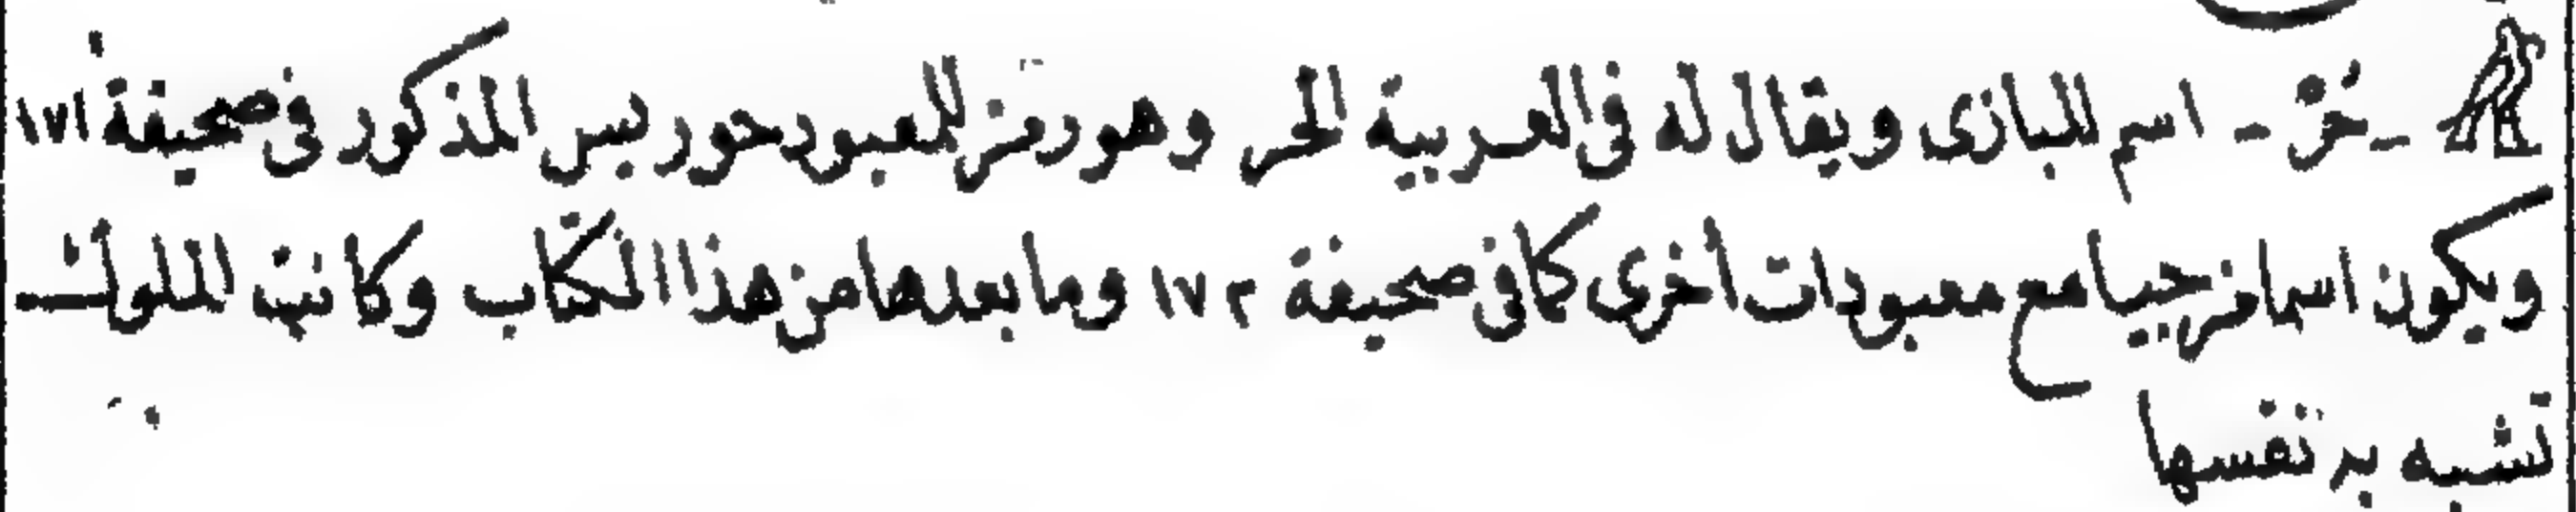 𓅃 - حُرْ - اسم للبازى ويقال له فى العربية الحر وهو رمز للمعبود حوربس المذكور فى صحيفة ١٧١
ويكون اسما مزجيا مع معبودات أخرى كما فى صحيفة ١٧٢ وما بعدها من هذا الكتاب وكانت الملوك
تشبه به نفسها